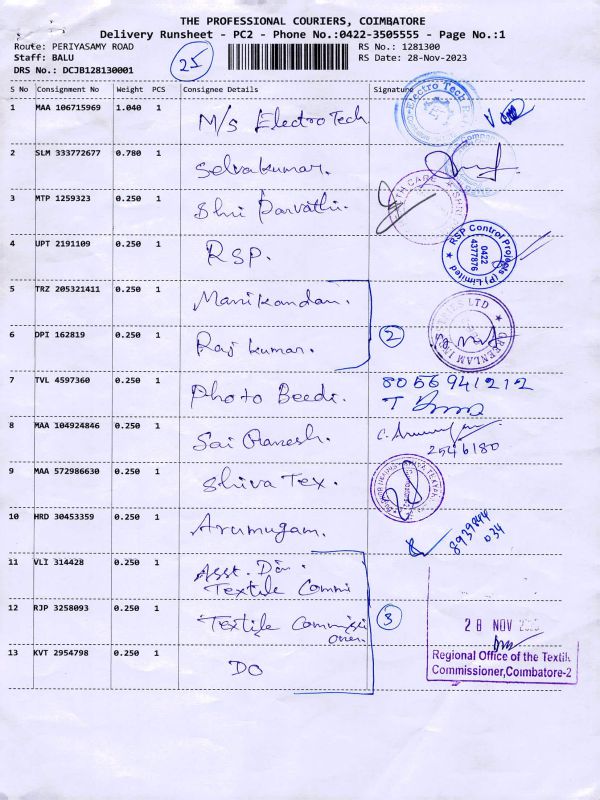 THE PROFESSIONAL COURIERS, COIMBATORE
Delivery Runsheet - PC2 - Phone No.:0422-3505555 - Page No.:1
Route: PERIYASAMY ROAD
RS No.: 1281300
Staff: BALU
RS Date: 28-Nov-2023
DRS No.: DCJB128130001
25
S No Consignment No Weight PCS Consignee Details Signature
1 MAA 106715969 1.040 1 M/s ElectroTech
2 SLM 333772677 0.780 1 Selvakumar.
3 MTP 1259323 0.250 1 Shri Parvathi.
4 UPT 2191109 0.250 1 RSP.
RSP Control Projects (P) Limited
0422
4377876
5 TRZ 205321411 0.250 1 Manikandan.
6 DPI 162819 0.250 1 Raj kumar.
2
7 TVL 4597360 0.250 1 Photo Beedi.
8056941212
8 MAA 104924846 0.250 1 Sai Ganesh.
2546180
9 MAA 572986630 0.250 1 Shiva Tex.
10 HRD 30453359 0.250 1 Arumugam.
8939844
034
11 VLI 314428 0.250 1 Asst. Dir.
Textile Commi
12 RJP 3258093 0.250 1 Textile Commissi
oner.
3
28 NOV
13 KVT 2954798 0.250 1 DO
Regional Office of the Textile
Commissioner, Coimbatore-2